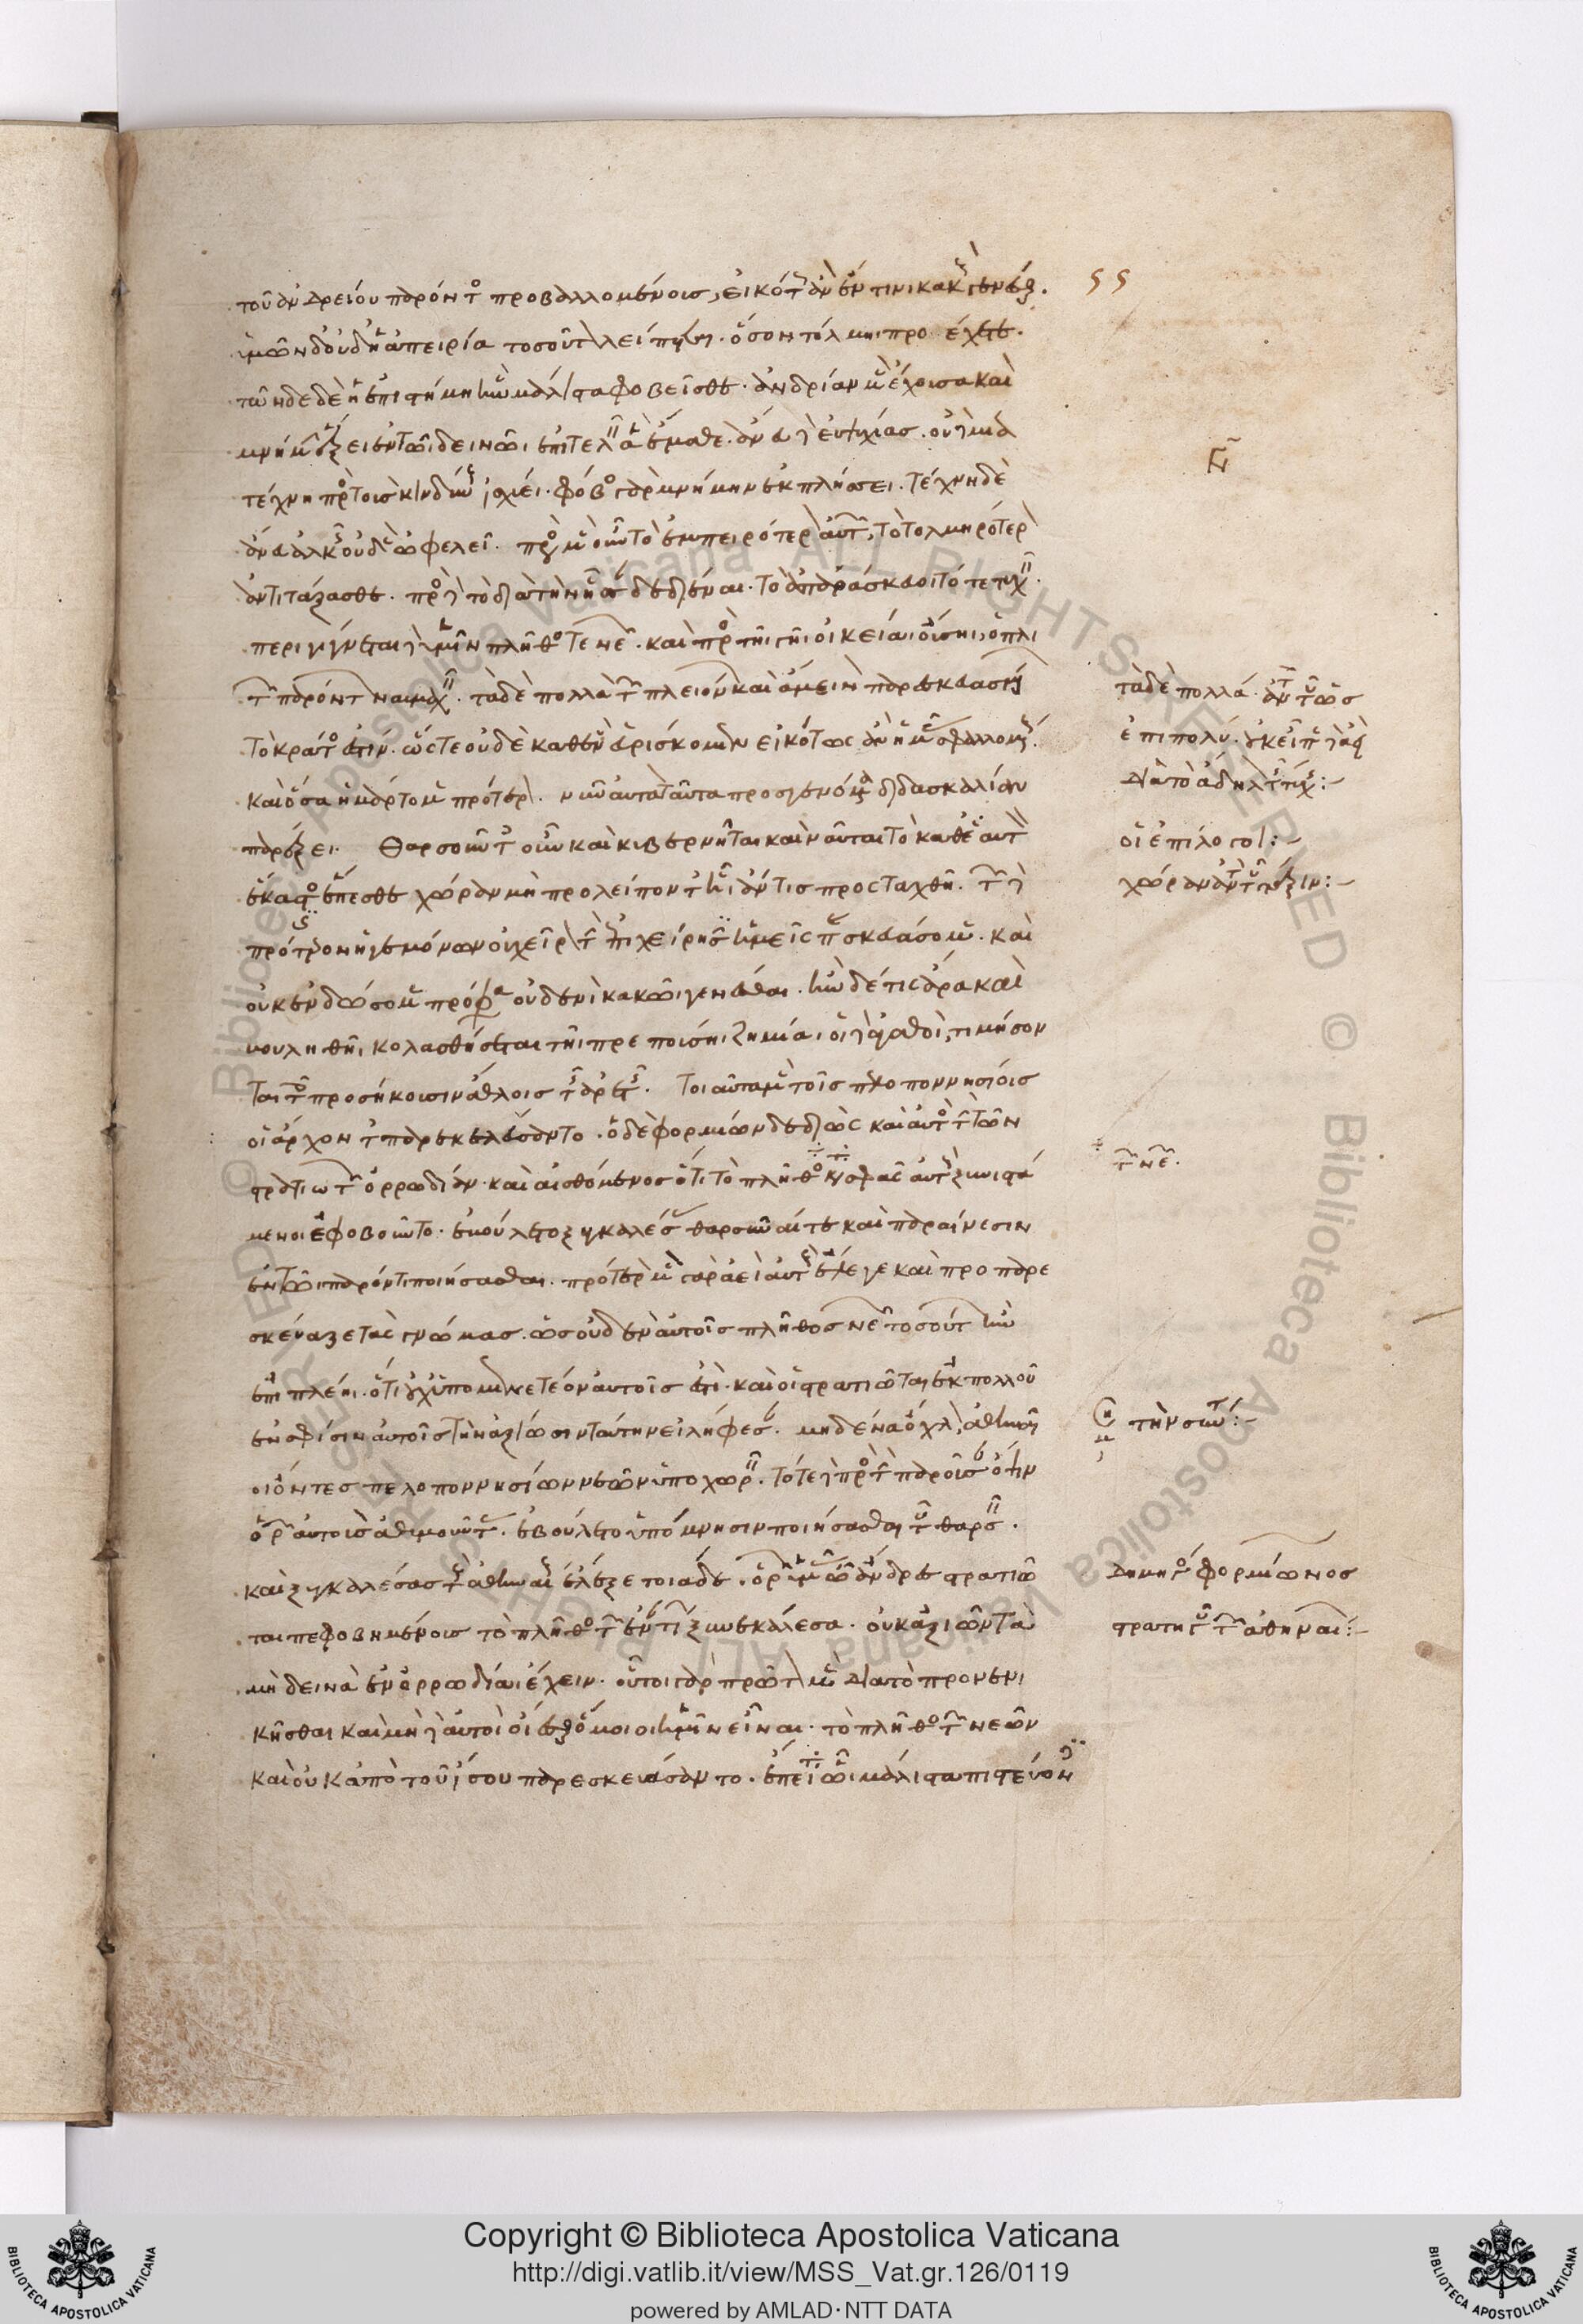 τοῦ ἀνδρείου παρόντος προβαλλομένους, εἰκότως ἂν ἔν τινι κακοὺς γενέσθαι.
ὑμῶν δ' οὐδὲ ἡ ἀπειρία τοσοῦτον λείπεται. ὅσον τόλμηι προέχετε.
τῶνδε δὲ ἡ ἐπιστήμη ἣν μάλιστα φοβεῖσθε. ἀνδρίαν μὲν ἔχουσα καὶ
μνήμην ἕξει ἐν τῶι δεινῶι ἐπιτελεῖν ἃ ἔμαθε. ἄνευ δὲ εὐψυχίας. οὐδεμία
τέχνη πρὸς τοὺς κινδύνους ἰσχύει. φόβος γὰρ μνήμην ἐκπλήσσει. τέχνη δὲ
ἄνευ ἀλκῆς οὐδὲν ὠφελεῖ. πρὸς μὲν οὖν τὸ ἐμπειρότερον αὐτῶν, τὸ τολμηρότερον
ἀντιτάξασθε. πρὸς δὲ τὸ διὰ τὴν ἧσσαν δεδιέναι. τὸ ἀπαράσκευοι τότε τυχεῖν.
περιγίγνεται δὲ ὑμῖν πλῆθος τε νεῶν. καὶ πρὸς τῆι γῆι οἰκείαι οὔσηι, ὁπλι
τῶν παρόντων ναυμαχεῖν. τὰ δὲ πολλὰ τῶν πλειόνων καὶ ἄμεινον παρεσκευασμένων
τὸ κράτος ἐστίν. ὥστε οὐδὲ καθ' ἓν εὑρίσκομεν εἰκότως ἂν ἡμᾶς σφαλλομένους.
καὶ ὅσα ἡμάρτομεν πρότερον. νῦν αὐτὰ ταῦτα προσγενόμενα διδασκαλίαν
παρέξει. Θαρσοῦντες οὖν καὶ κυβερνῆται καὶ ναῦται τὸ καθ' ἑαυτὸν
ἕκαστος ἕπεσθε χώραν μὴ προλείποντες ἧι ἄν τις προσταχθῆι. τῶν δὲ
πρότερον ἡγεμόνων οὐ χεῖρον τὴν ἐπιχείρησιν ἡμεῖς παρασκευάσομεν. καὶ
οὐκ ἐνδώσομεν πρόφασιν οὐδενὶ κακῶι γενέσθαι. ἢν δέ τις ἄρα καὶ
βουληθῆι, κολασθήσεται τῆι πρεπούσηι ζημίαι. οἱ δὲ ἀγαθοὶ, τιμήσον
ται τοῖς προσήκουσιν ἄθλοις τῆς ἀρετῆς. Τοιαῦτα μὲν τοῖς πελοποννησίοις
οἱ ἄρχοντες παρεκελεύσαντο. ὁ δὲ φορμίων δεδιὼς καὶ αὐτὸς τὴν τῶν
στρατιωτῶν ὀρρωδίαν. καὶ αἰσθόμενος ὅτι τὸ πλῆθος κατὰ σφᾶς αὐτοὺς ξυνιστά
μενοι ἐφοβοῦντο. ἐβούλετο ξυγκαλέσας θαρσῦναί τε καὶ παραίνεσιν
ἐν τῶι παρόντι ποιήσασθαι. πρότερον μὲν γὰρ ἀεὶ αὐτοῖς ἔλεγε καὶ προπαρε
σκεύαζε τὰς γνώμας. ὡς οὐδὲν αὐτοῖς πλῆθος νεῶν τοσοῦτον ἢν
ἐπιπλέηι. ὅτι οὐχ ὑπομενετέον αὐτοῖς ἐστὶ. καὶ οἱ στρατιῶται ἐκ πολλοῦ
ἐν σφίσιν αὐτοῖς τὴν ἀξίωσιν ταύτην εἰλήφεσαν. μηδένα ὄχλον, ἀθηναῖοι
ὄντες πελοποννησίων νεῶν ὑποχωρεῖν. τότε δὲ πρὸς τὴν παροῦσαν ὄψιν
ὁρῶν αὐτοὺς ἀθυμοῦντας. ἐβούλετο ὑπόμνησιν ποιήσασθαι τοῦ θαρσεῖν.
καὶ ξυγκαλέσας τοὺς ἀθηναίους ἔλεξε τοιάδε. ὁρῶν ὑμᾶς ὦ ἄνδρες στρατιῶ
ται πεφοβημένους τὸ πλῆθος τῶν ἐναντίων ξυνεκάλεσα. οὐκ ἀξιῶν τὰ
μὴ δεινὰ ἐν ὀρρωδίαι ἔχειν. οὗτοι γὰρ πρῶτον μὲν διὰ τὸ προνενι
κῆσθαι καὶ μὴ δὲ αὐτοὶ οἴεσθαι ὅμοιοι ἡμῖν εἶναι. τὸ πλῆθος τῶν νεῶν
καὶ οὐκ ἀπὸ τοῦ ἴσου παρεσκευάσαντο. ἔπειτα ὧι μάλιστα πιστεύοντες
ϛϛ
τὰ δὲ πολλά. ἀντὶ τοῦ ὡς
ἐπιπολύ.
διὰ τὸ ἄδηλον τῆς τύχης:-
οἱ ἐπίλοιποι:-
χώραν ἀντὶ τοῦ τάξιν:-
τῶν νεῶν.
δημηγορία φορμίωνος
στρατηγοῦ τῶν ἀθηναίων:-
Copyright © Biblioteca Apostolica Vaticana
http://digi.vatlib.it/view/MSS_Vat.gr.126/0119
powered by AMLAD·NTT DATA
BIBLIOTECA APOSTOLICA VATICANA
BIBLIOTECA APOSTOLICA VATICANA